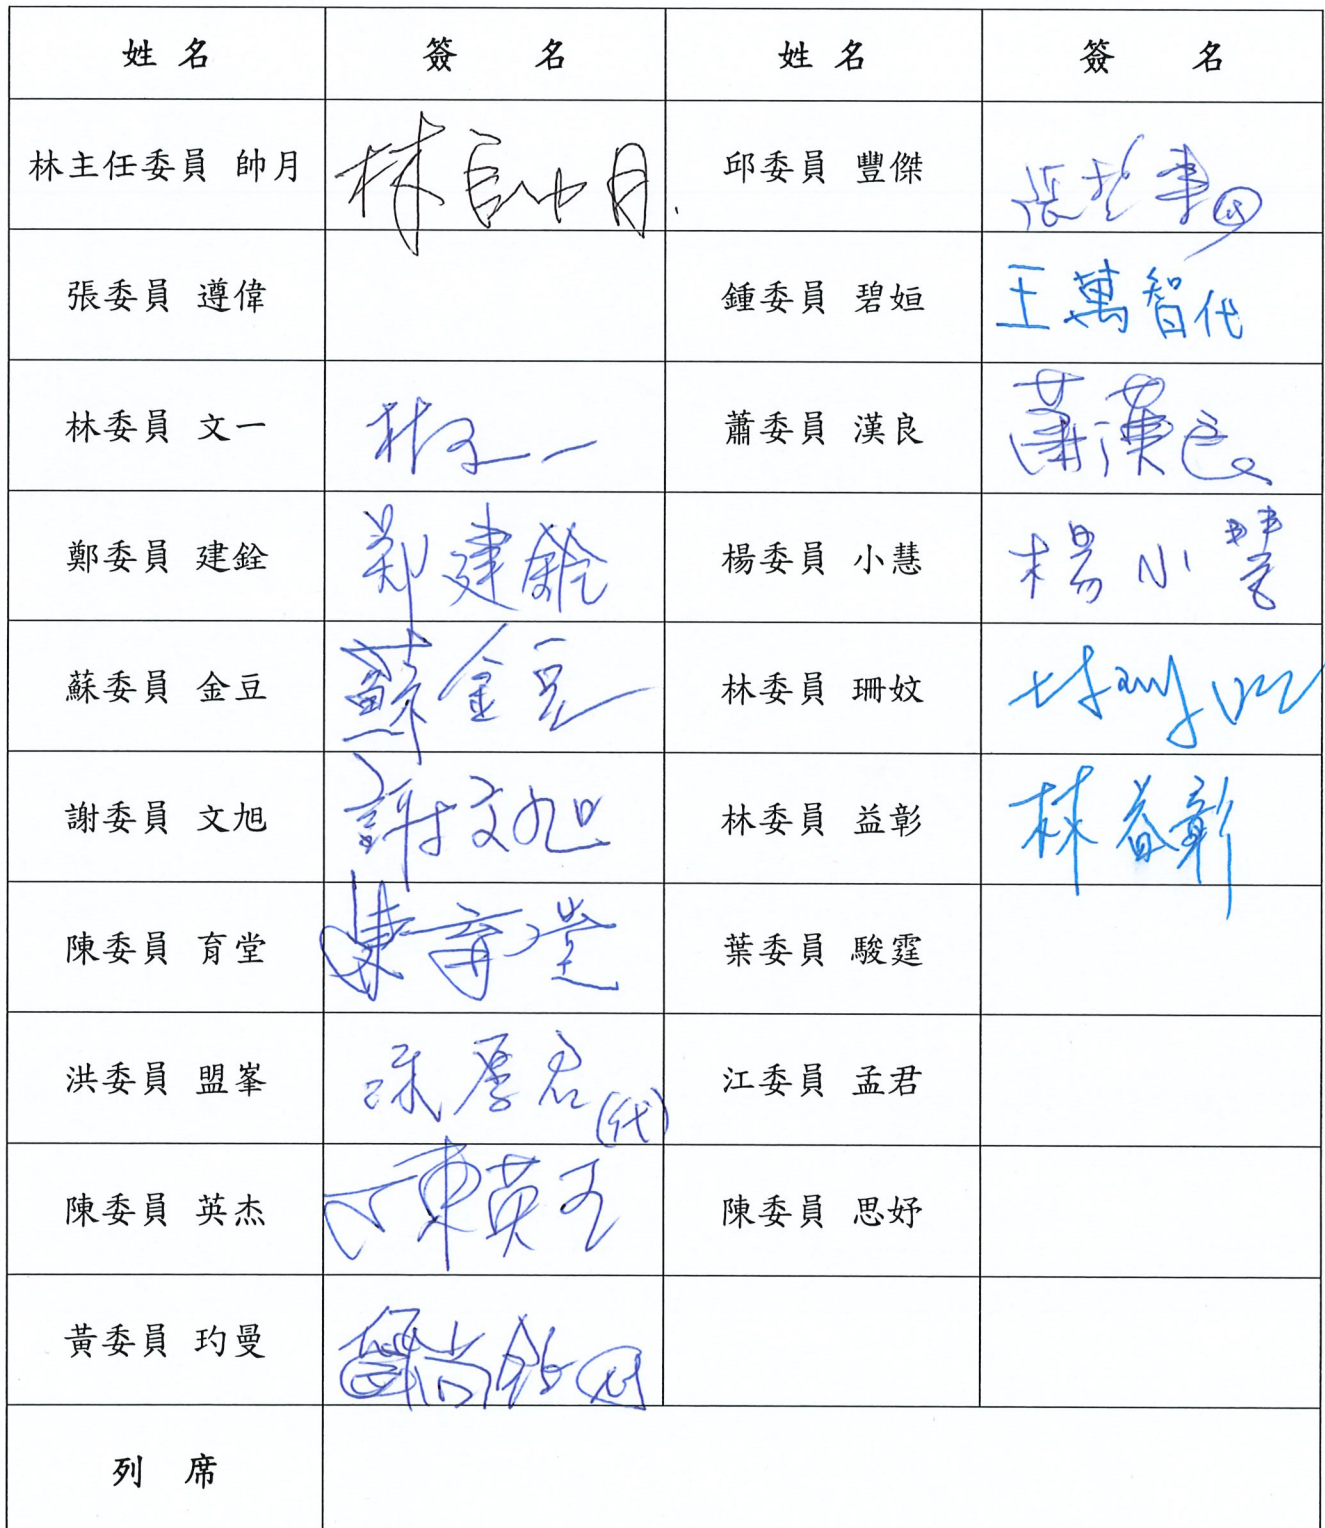 姓名 簽名 姓名 簽名
林主任委員 帥月 林帥月 邱委員 豐傑
張委員 遵偉 鍾委員 碧姮 王萬智代
林委員 文一 林文一 蕭委員 漢良 蕭漢良
鄭委員 建銓 鄭建銓 楊委員 小慧 楊小慧
蘇委員 金豆 蘇金豆 林委員 珊妏
謝委員 文旭 謝文旭 林委員 益彰 林益彰
陳委員 育堂 陳育堂 葉委員 駿霆
洪委員 盟峯 (代) 江委員 孟君
陳委員 英杰 陳英杰 陳委員 思妤
黃委員 玓曼
列席